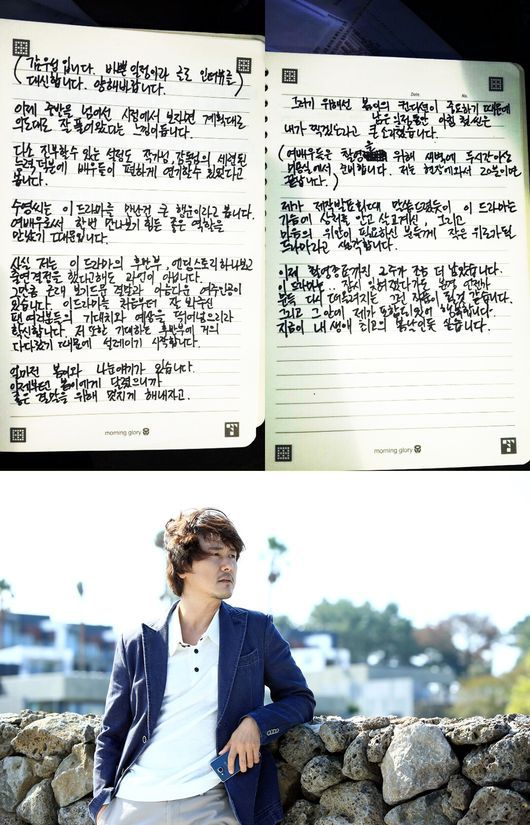 (감우성 입니다. 바쁜 일정이라 글로 인터뷰를
대신합니다. 양해바랍니다.)
이제 중반을 넘어선 시점에서 보자면 계획대로
의도대로 잘 풀어왔다는 느낌이 듭니다.
다소 진부할수 있는 설정도 작가님, 감독님의 세련된
노련 덕분에 배우들이 편하게 연기할수 있었다고
봅니다.
수영씨는 이 드라마를 만난건 큰 행운이라고 봅니다.
여배우로써 한번 만나보기 힘든 좋은 역할을
만났기 때문입니다.
사실 저는 이 드라마의 후반부, 엔딩 스토리 하나보고
출연결정을 했다고해도 과언이 아닙니다.
그만큼 근래 보기드문 결말과 아름다운 여주인공이
있습니다. 이드라마를 처음부터 잘 봐주신
팬 여러분들의 기대치와 예상을 뛰어넘으리라
확신합니다. 저 또한 기대하는 후반부에 거의
다다랐기 때문에 설레이기 시작합니다.
얼마전 봄이와 나눈얘기가 있습니다.
이제부턴, 봄이에게 달렸으니까
좋은 결말을 위해 멋지게 해내자고.
morning glory
Date. No.
그러기 위해선 봄이의 컨디션이 중요하기 때문에
남은 일정동안 아침 첫씬은
내가 찍겠노라고 큰소리쳤습니다.
(여배우들은 촬영을 위해 새벽에 두시간이상
미용실에서 준비합니다. 저는 현장에와서 20분이면
끝납니다.)
제가 제작발표회때 말씀드렸듯이 이 드라마는
가슴에 상처를 안고 살고계신, 그리고
마음의 위로가 필요하신 분들께 작은 위로가될
드라마라고 생각합니다.
이제 촬영종료까진 2주가 조금 더 남았습니다.
이 드라마는.. 잠시 잊혀졌다가도 봄이면 언젠가
문득 다시 떠올려지는 그런 작품이 될것 같습니다.
그리고 그 안에 제가 포함되있어 행복합니다.
지금이 내 생애 최고의 봄날인듯 싶습니다.
morning glory